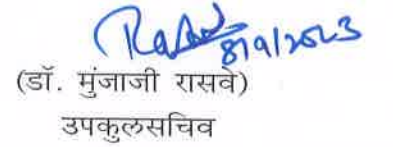 8/9/2023
(डॉ. मुंजाजी रासवे)
उपकुलसचिव